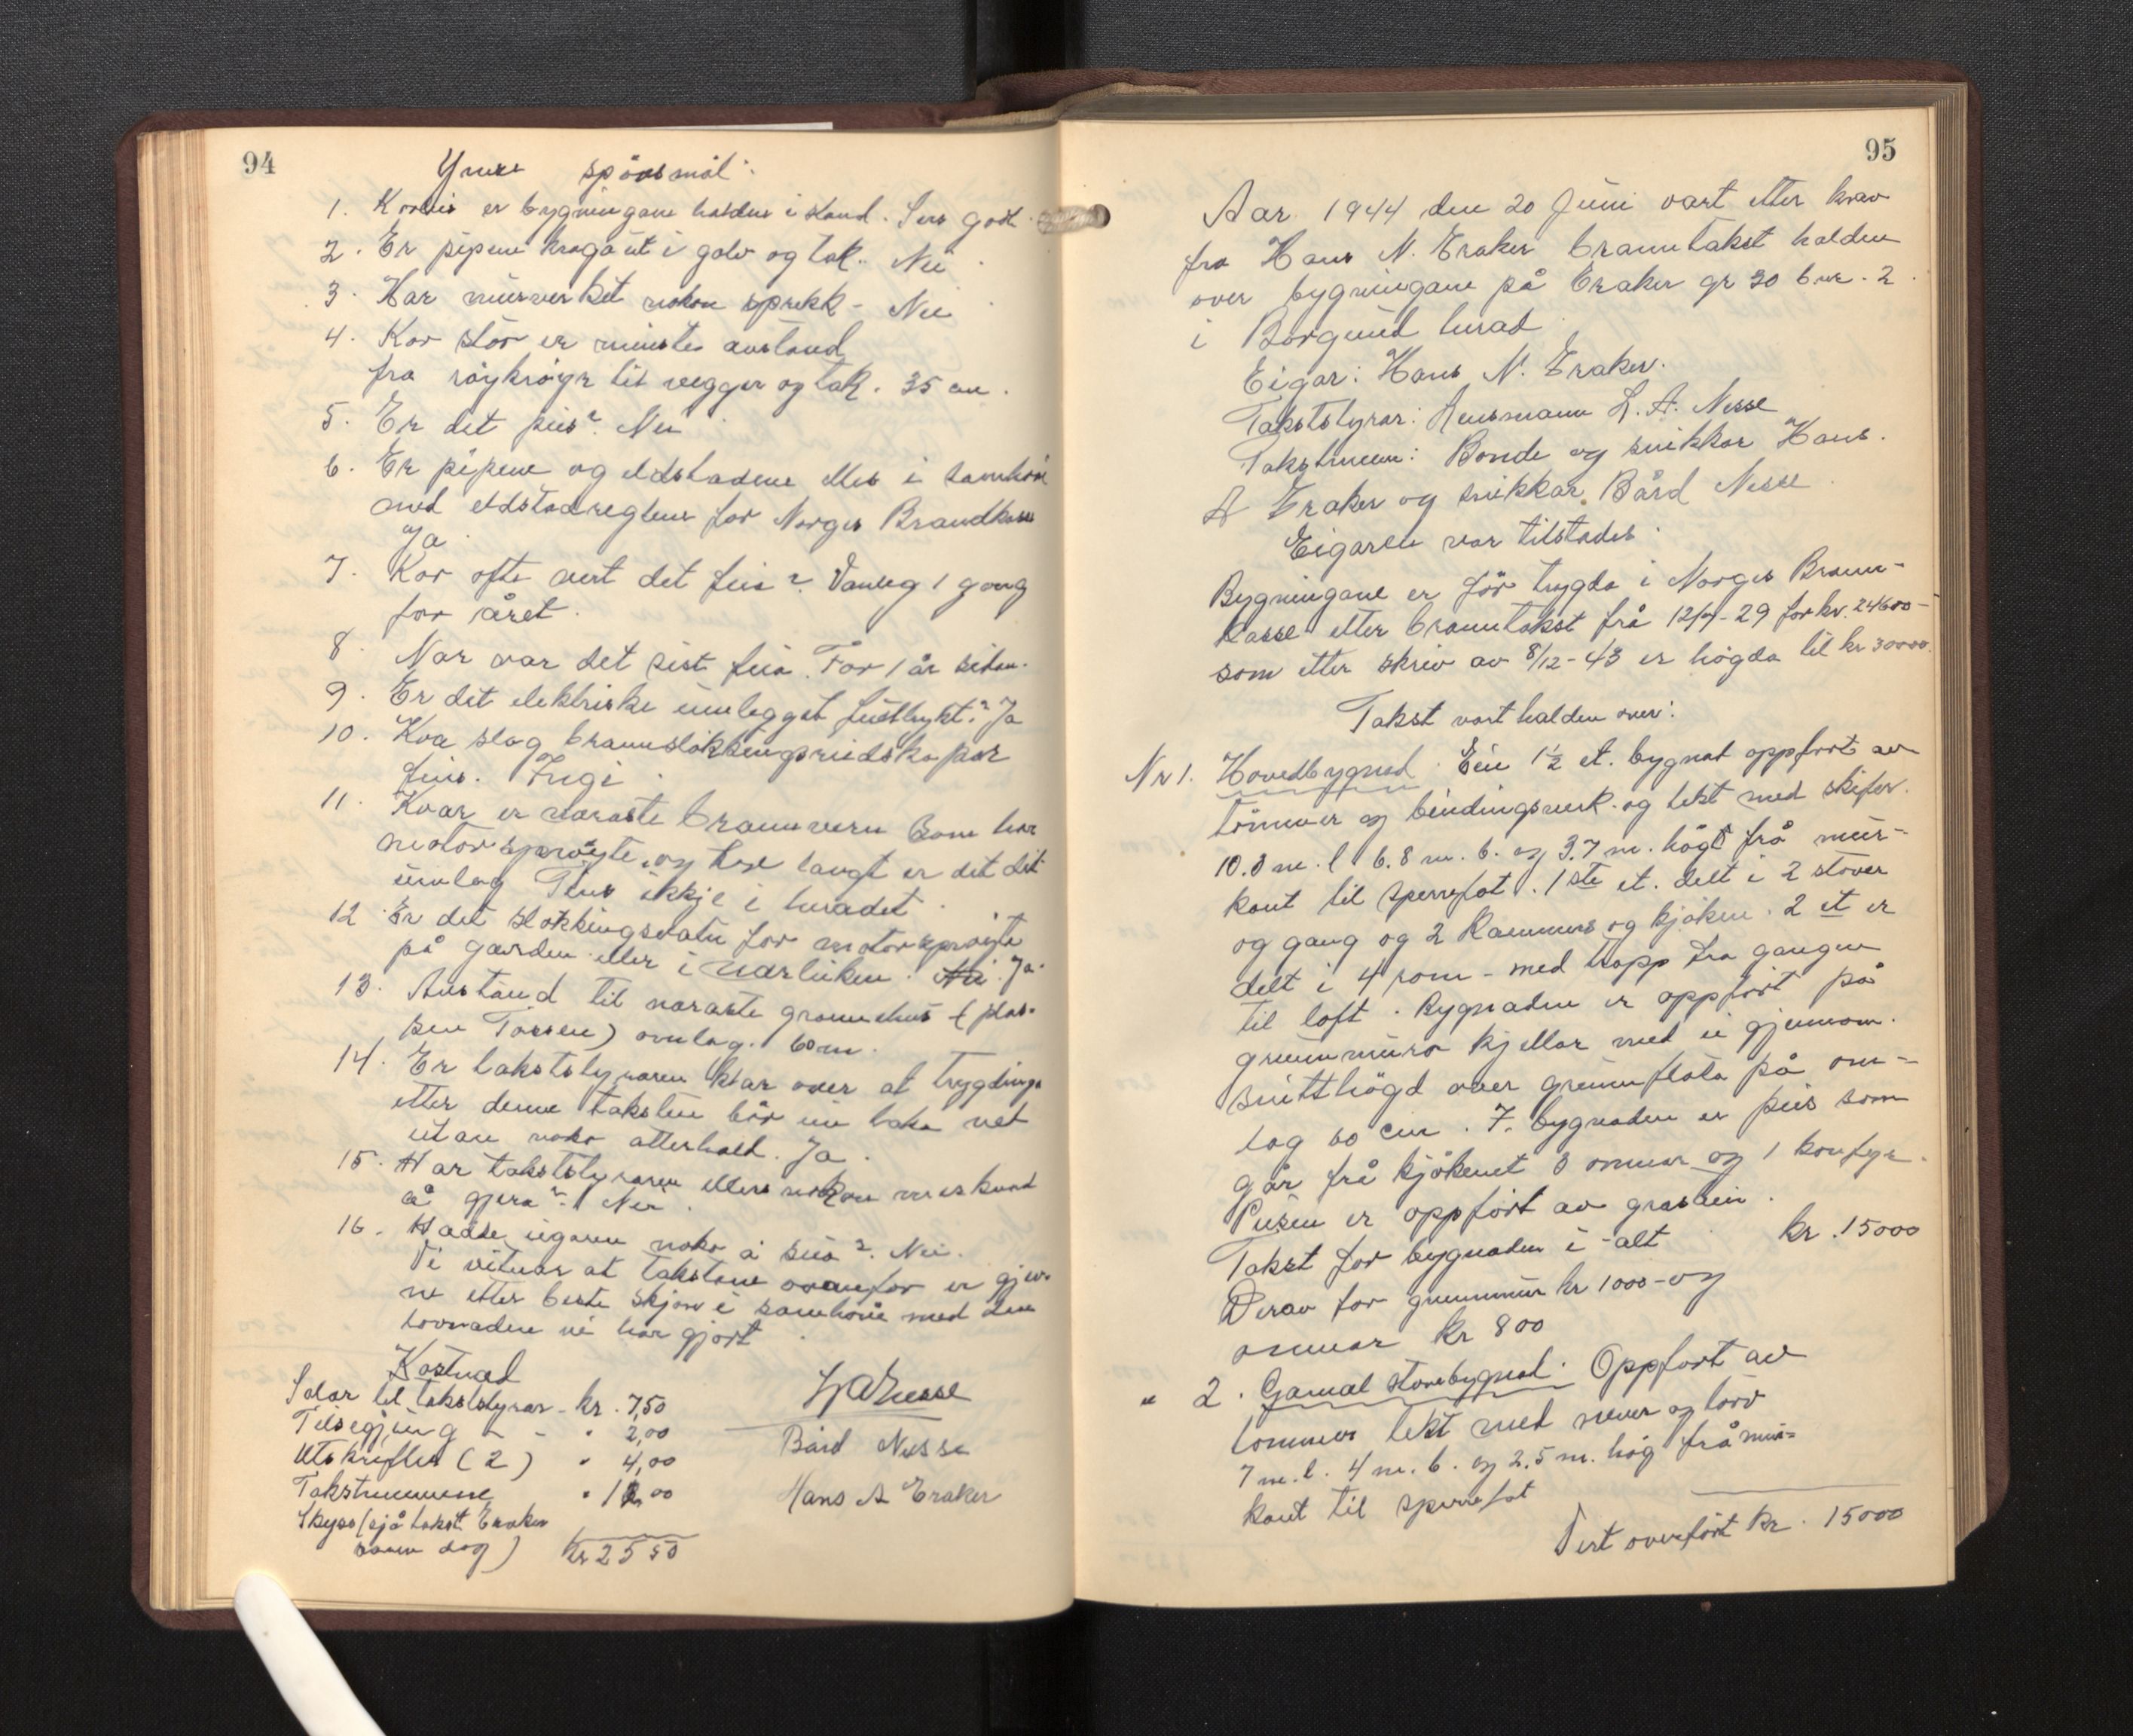 94
Ymse spörsmål:
1. Korleis er bygningane haldne i stand. Sers godt.
2. Er pipene kraga ut i golv og tak. Nei.
3. Har murverket nokon sprekk - Nei.
4. Kor stor er minste avstand
fra röykröyr til vegger og tak. 35 cm.
5. Er det peis? Nei
6. Er pipene og eldstadene elles i samhöve
med eldstadreglene for Norges Brandkasse
Ja.
7. Kor ofte vert det feia? Vanleg 1 gong
for året.
8. Nar var det sist feia. For 1 år sidan.
9. Er det elektriske innlegget fuktlrykt? Ja
10. Kva slag brannslökkingsreidskapar
fins. Ingi.
11. Kvar er næraste brannvern som har
motorspröyte, og kor langt er det dit
umlag Fins ikkje i heradet.
12 Er det slökkingsvatn for motorspröyte
på garden eller i nærleiken. Nei. Ja.
13. Avstand til næraste grannehus (plas-
sen Tossen) omlag. 60 m.
14. Er takststyraren klar over at trygdinga
etter denne taksten bör inn taka ved
utan noko atterhald. Ja.
15. Har takststyraren ellers nokon merknad
å gjera? Nei.
16. Hadde eigaren noko å seia? Nei.
Vi vitnar at takstane ovanfor er gjev-
ne etter beste skjön i samhöve med den
lovnaden vi har gjort.
Kostnad
Salar til takststyrar - kr. 7,50
Tilsegjing - - " 2,00
Utskrifter (2) " 4,00
Takstmennene " 12,00
Skyss (sjå takst Eraker
same dag)
Kr 25 50
L A Nesse
Bård Nesse
Hans A Eraker
95
Aar 1944 den 20 Juni vart etter krav
fra Hans N. Eraker branntakst halden
over bygningane på Eraker gr 30 b nr. 2.
i Borgund herad.
Eigar: Hans N. Eraker.
Takststyrar: Lensmann L. A. Nesse
Takstmenn: Bonde og snikkar Hans.
A Eraker og snikkar Bård Nesse.
Eigaren var tilstades.
Bygningane er för trygda i Norges Brann-
kasse etter branntakst frå 12/7-29 for kr. 24600-
som etter skriv av 8/12-43 er högda til kr 30000.
Takst vart halden over:
Nr 1. Hovedbygnad. Ein 1½ et. bygnat oppfört av
tömmer og bindingsverk og tekt med skifer.
10.3 m. l 6.8 m. b. og 3.7 m. högt frå mur-
kant til sperrefot. 1ste et. delt i 2 stover
og gang og 2 kammers og kjöken. 2 et er
delt i 4 rom - med trapp fra gangen
til loft. Bygnaden er oppfört på
grunnmura kjellar med ei gjennom-
snitthögd over grunnflata på om-
lag 60 cm. I bygnaden er peis som
går frå kjökenet 3 omnar og 1 komfyr.
Peisen er oppfört av gråstein.
Takst for bygnaden i alt kr. 15000
Derav for grunnmur kr 1000- og
omnar kr 800
" 2. Gamal stovebygnad. Oppfört av
tömmer tekt med never og torv
7 m. l. 4 m. b. og 2.5 m. hög frå mur-
kant til sperrefot
Vert overfört kr. 15000